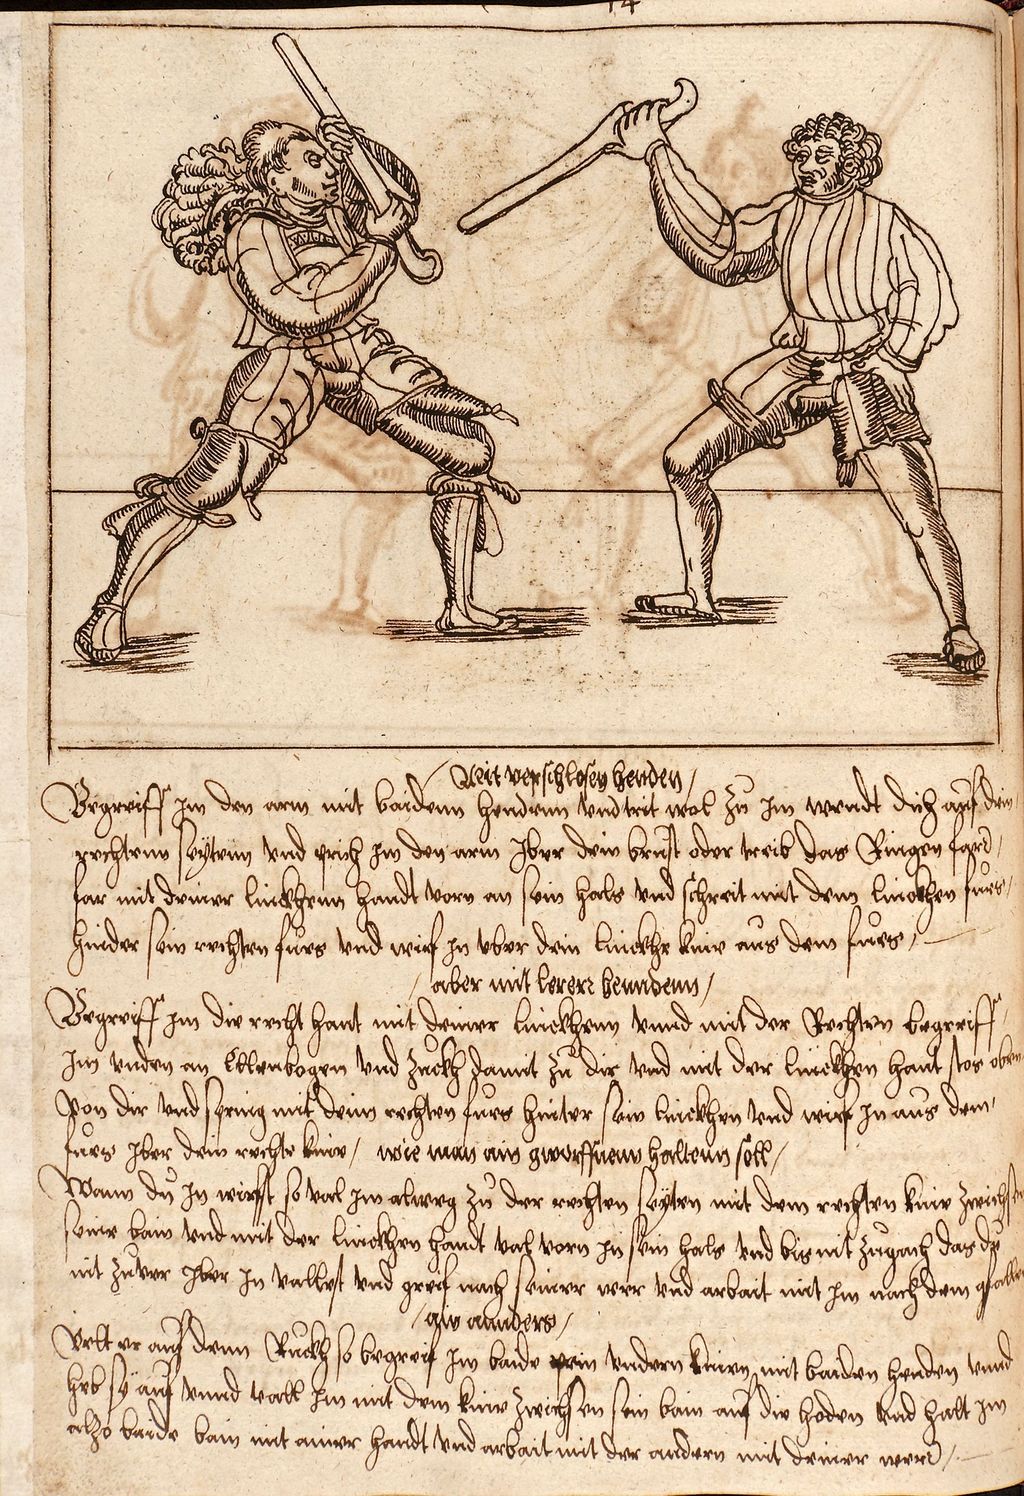 14
Mit verschlosen henden /
Begreiff Im den arm mit baidenn hendenn vnd trit wol zů Im wendt dich auf dein
rechtenn seÿtenn vnd prich Im den arm Iber dein brust oder treib das Ringen
far mit deiner linckhenn handt vorn an sein hals vnd schreit mit dem linckhen fues /
hinder sein rechten fues vnd wirf In vber dein linckhe knie aus dem fues /
aber mit lerer henndenn /
Begreiff Im die recht hant mit deiner linckhenn vnnd mit der Rechten begreiff /
Im vnden an Ellenbogen vnd zuckh damit zů dir vnd mit der linckhen hant stos oben
von dir vnd spring mit deim rechten fues hinter sein linckhen vnd wirf In aus dem /
fues Iber dein rechte knie / wie man ain gworffnenn haltenn soll /
Wann dů In wirfst so val Im alweg zů der rechten seÿten mit dem rechten knie zwischen
seine bain vnd mit der linckhen handt val vorn In sein hals vnd bis nit zugach das dů
nit zůver Iber In vallest vnd greif nach seiner wer vnd arbait mit Im nach dem gfallen
ain annders /
Velt er auf denn Ruckh so begreif Im baide pein vndern knien mit baiden henden vnnd
heb sÿ auf vnnd vall Im mit dem knie zwischen sein bain auf die hoden vnd halt Im
also baide bain mit ainer handt vnd arbait mit der andern mit deiner wer /